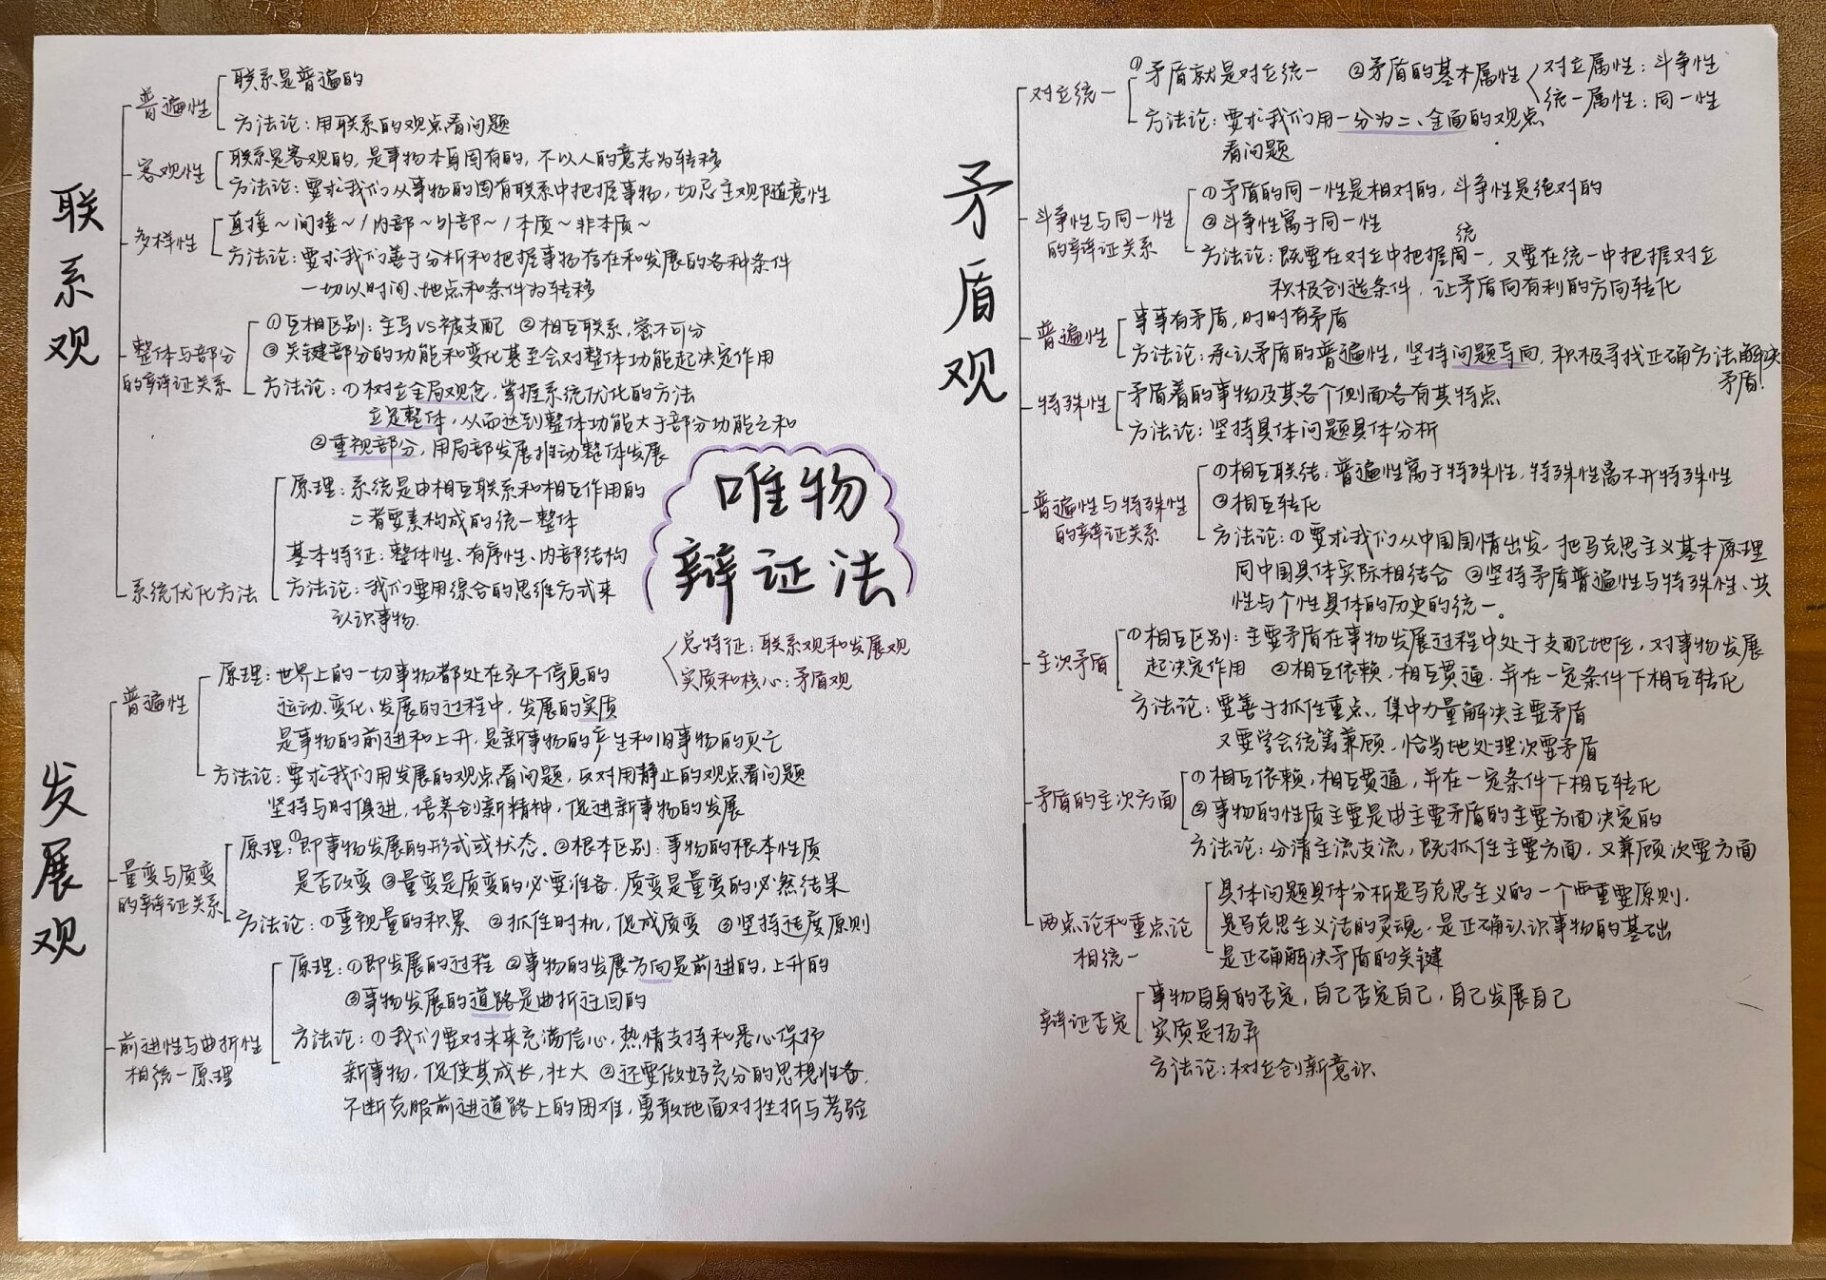 唯物
辩证法
总特征：联系观和发展观
实质和核心：矛盾观
联系观
普遍性
联系是普遍的
方法论：用联系的观点看问题
客观性
联系是客观的，是事物本身固有的，不以人的意志为转移
方法论：要求我们从事物的固有联系中把握事物，切忌主观随意性
多样性
直接～间接～/内部～外部～/本质～非本质～
方法论：要求我们善于分析和把握事物存在和发展的各种条件
一切以时间、地点和条件为转移
整体与部分
的辩证关系
①互相区别：主导VS被支配 ②相互联系，密不可分
③关键部分的功能和变化甚至会对整体功能起决定作用
方法论：①树立全局观念，掌握系统优化的方法
立足整体，从而达到整体功能大于部分功能之和
②重视部分，用局部发展推动整体发展
系统优化方法
原理：系统是由相互联系和相互作用的
二者要素构成的统一整体
基本特征：整体性、有序性、内部结构
方法论：我们要用综合的思维方式来
认识事物.
发展观
普遍性
原理：世界上的一切事物都处在永不停息的
运动、变化、发展的过程中，发展的实质
是事物的前进和上升，是新事物的产生和旧事物的灭亡
方法论：要求我们用发展的观点看问题，反对用静止的观点看问题
坚持与时俱进，培养创新精神，促进新事物的发展
量变与质变
的辩证关系
原理：①即事物发展的形式或状态．②根本区别：事物的根本性质
是否改变 ③量变是质变的必要准备，质变是量变的必然结果
方法论：①重视量的积累 ②抓住时机，促成质变 ③坚持适度原则
前进性与曲折性
相统一原理
原理：①即发展的过程 ②事物的发展方向是前进的，上升的
③事物发展的道路是曲折迂回的
方法论：①我们要对未来充满信心，热情支持和悉心保护
新事物，促使其成长，壮大 ②还要做好充分的思想准备.
不断克服前进道路上的困难，勇敢地面对挫折与考验
矛盾观
对立统一
①矛盾就是对立统一 ②矛盾的基本属性
对立属性：斗争性
统一属性：同一性
方法论：要求我们用一分为二、全面的观点
看问题
斗争性与同一性
的辩证关系
①矛盾的同一性是相对的，斗争性是绝对的
②斗争性寓于同一性
方法论：既要在对立中把握统一，又要在统一中把握对立
积极创造条件，让矛盾向有利的方向转化
普遍性
事事有矛盾，时时有矛盾
方法论：承认矛盾的普遍性，坚持问题导向，积极寻找正确方法解决
矛盾！
特殊性
矛盾着的事物及其各个侧面各有其特点
方法论：坚持具体问题具体分析
普遍性与特殊性
的辩证关系
①相互联结：普遍性寓于特殊性，特殊性离不开特殊性
②相互转化
方法论：①要求我们从中国国情出发，把马克思主义基本原理
同中国具体实际相结合 ②坚持矛盾普遍性与特殊性、共
性与个性具体的历史的统一。
主次矛盾
①相互区别：主要矛盾在事物发展过程中处于支配地位，对事物发展
起决定作用 ②相互依赖，相互贯通，并在一定条件下相互转化
方法论：要善于抓住重点，集中力量解决主要矛盾
又要学会统筹兼顾，恰当地处理次要矛盾
矛盾的主次方面
①相互依赖，相互贯通，并在一定条件下相互转化
②事物的性质主要是由主要矛盾的主要方面决定的
方法论：分清主流支流，既抓住主要方面，又兼顾次要方面
两点论和重点论
相统一
具体问题具体分析是马克思主义的一个重要原则.
是马克思主义活的灵魂，是正确认识事物的基础
是正确解决矛盾的关键
辩证否定
事物自身的否定，自己否定自己，自己发展自己
实质是扬弃
方法论：树立创新意识